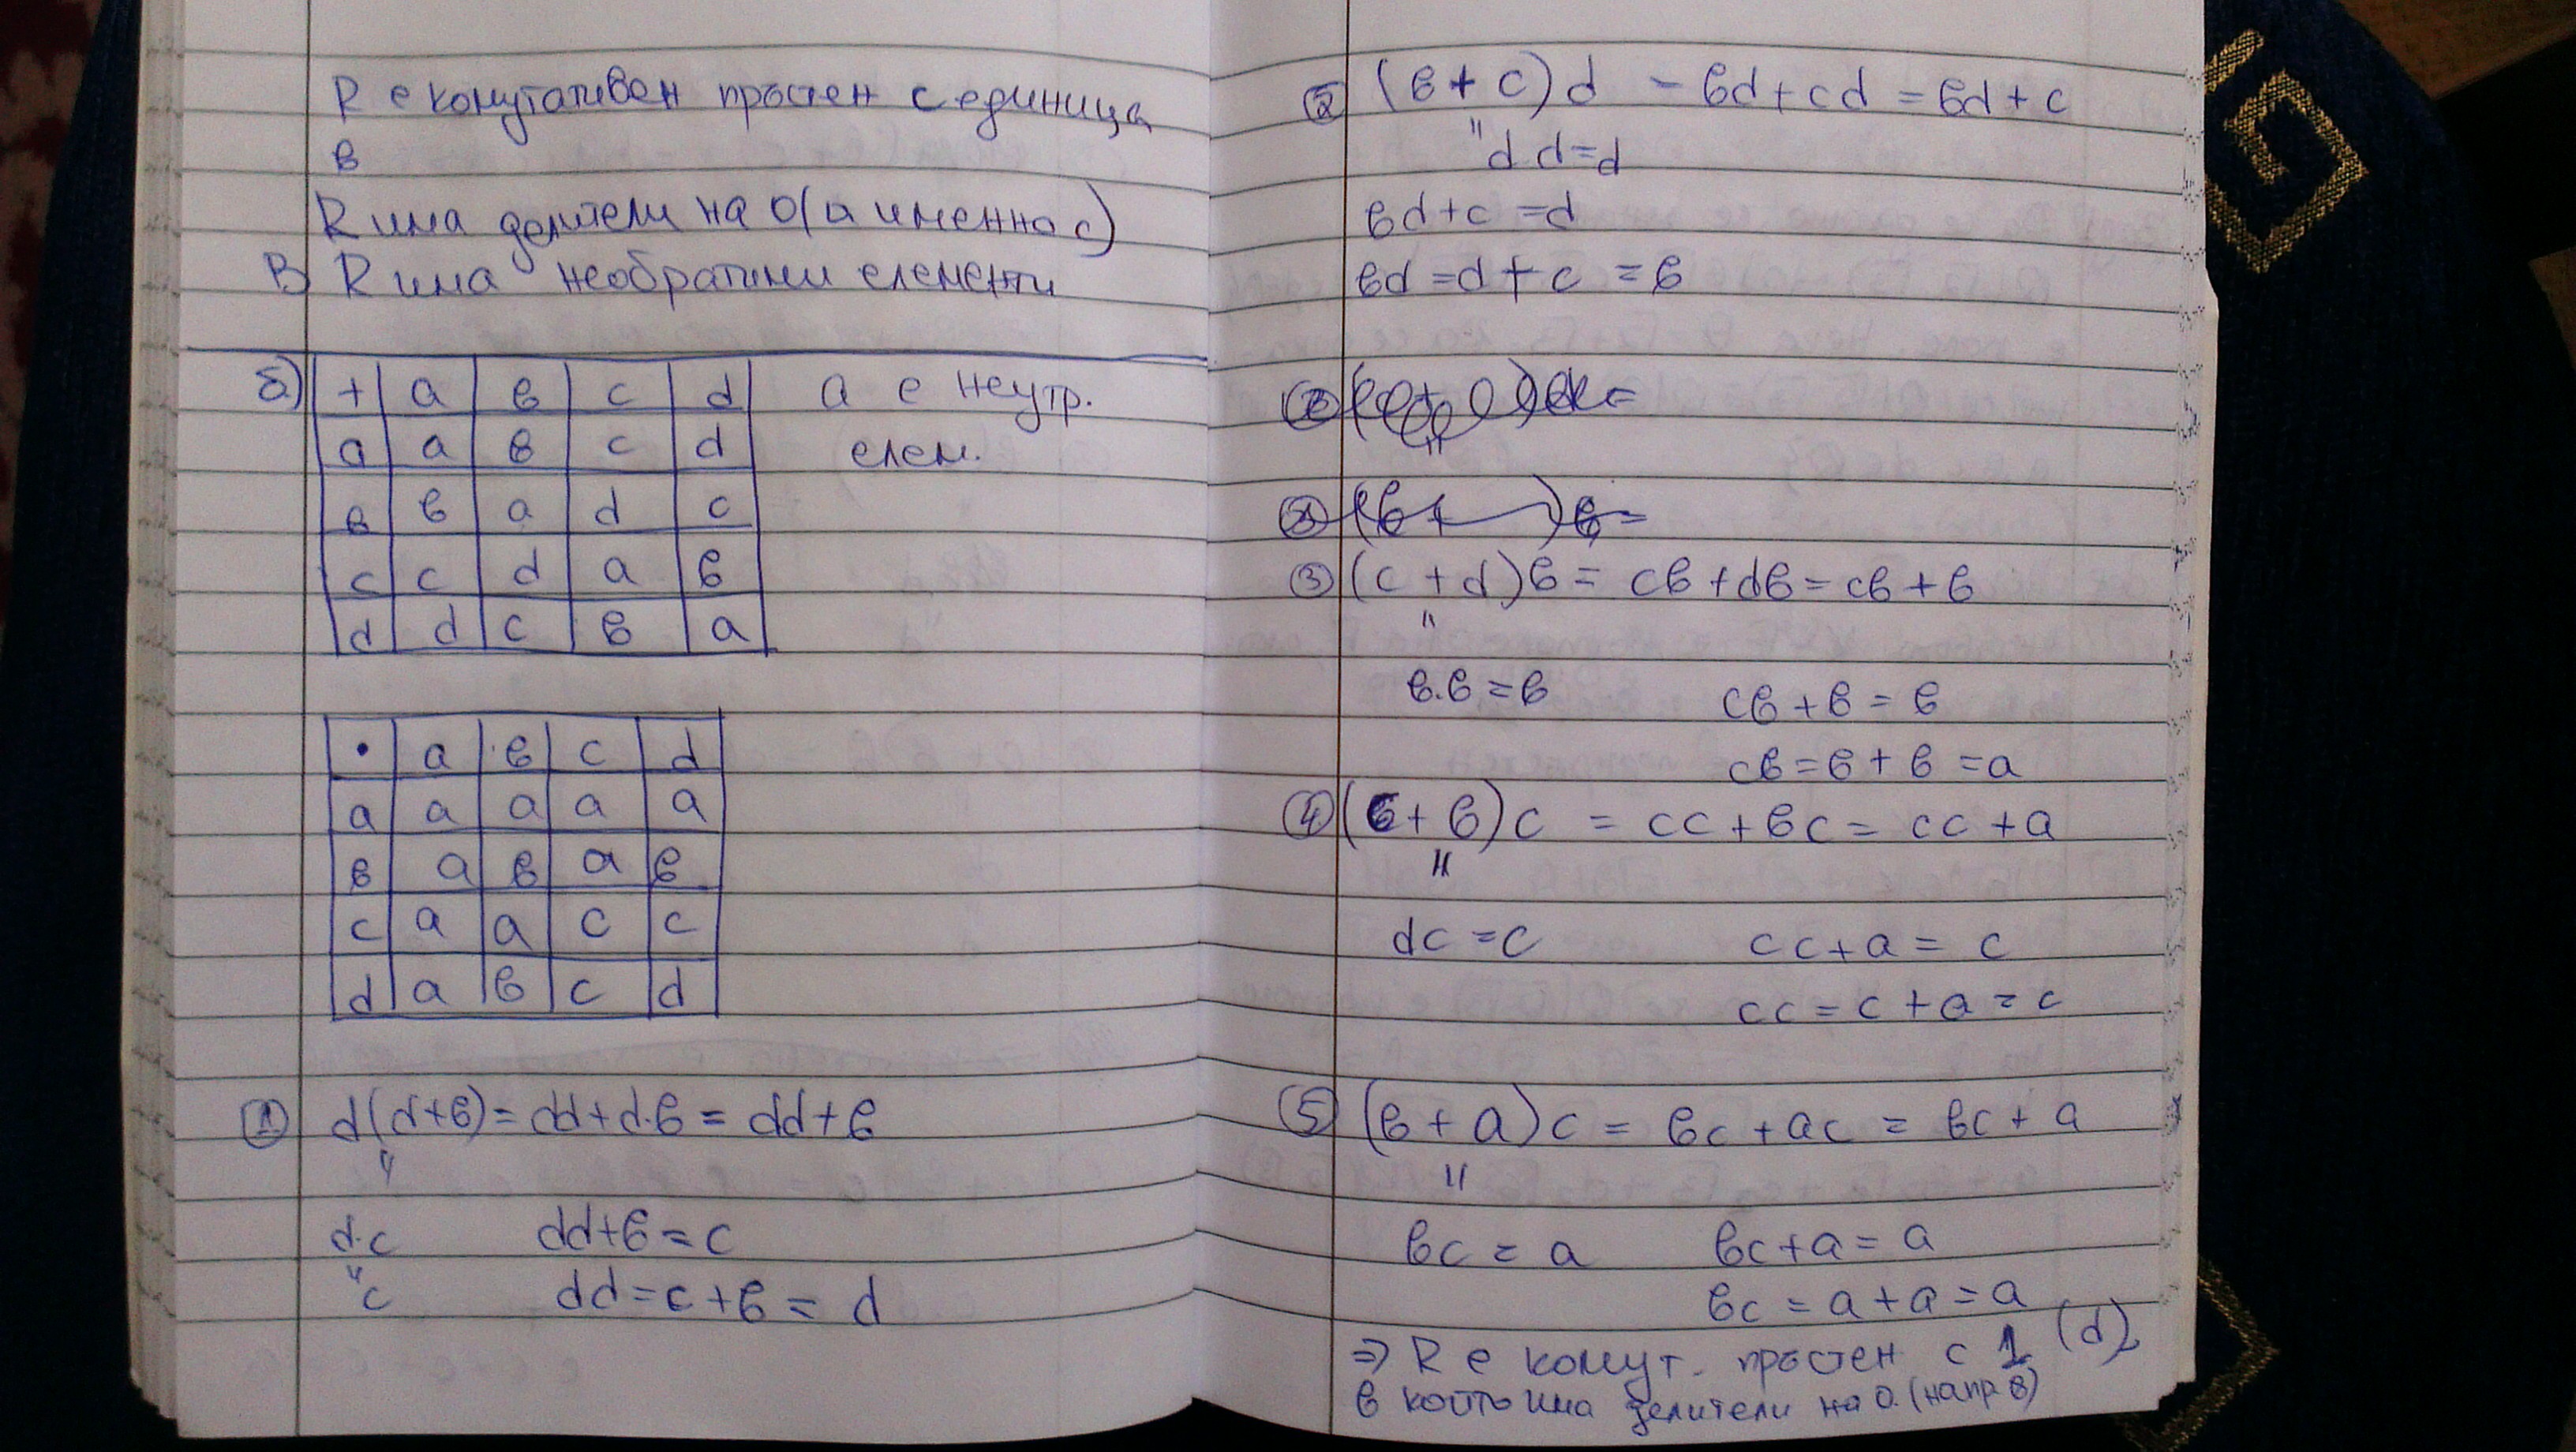 R е комутативен пръстен с единица
в
R има делители на 0 (а именно с)
В) R има необратими елементи
б) + a в c d a е неутр.
a a в c d елем.
в в a d c
c c d a в
d d c в a
• a в c d
a a a a a
в a в a в
c a a c c
d a в c d
① d(d+в) = dd+d.в = dd+в
"
d.c dd+в = c
"c dd = c+в = d
② (в+c)d = вd+cd = вd+c
"d d=d
вd+c = d
вd = d+c = в
③ (c+d)в = cв+dв = cв+в
"
в.в = в cв+в = в
cв = в+в = a
④ (c+в)c = cc+вc = cc+a
"
dc = c cc+a = c
cc = c+a = c
⑤ (в+a)c = вc+ac = вc+a
"
вc = a вc+a = a
вc = a+a = a
⇒ R е комут. пръстен с 1 (d),
в който има делители на 0. (напр в)